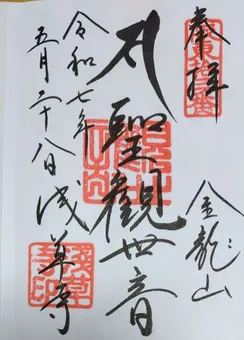 奉拝
金龍山
聖觀世音
令和七年
五月二十八日 浅草寺